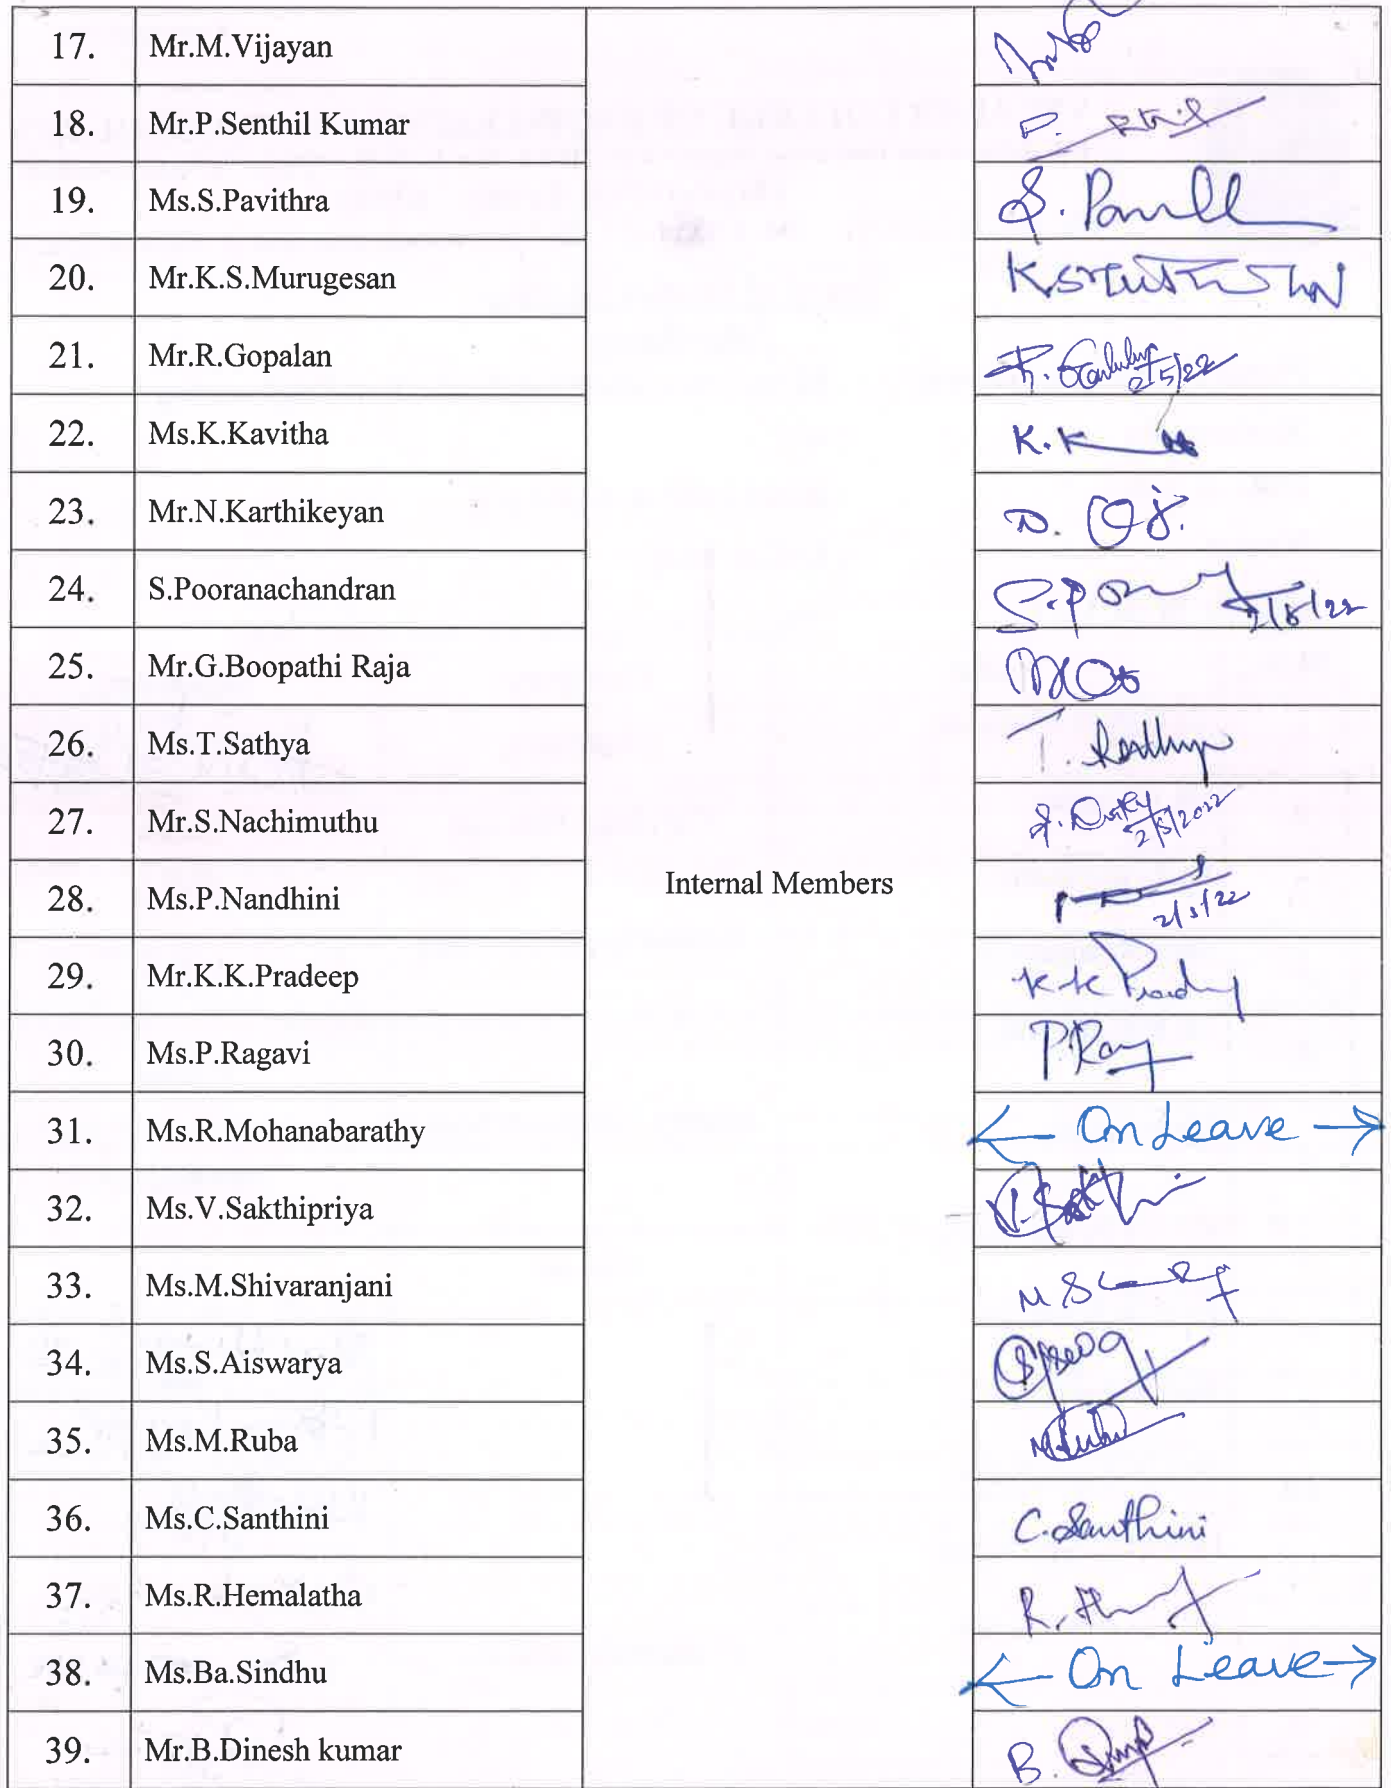 17. Mr.M.Vijayan
18. Mr.P.Senthil Kumar P.
19. Ms.S.Pavithra S.
20. Mr.K.S.Murugesan
21. Mr.R.Gopalan R. 2/5/22
22. Ms.K.Kavitha K.K
23. Mr.N.Karthikeyan
24. S.Pooranachandran 2/5/22
25. Mr.G.Boopathi Raja
26. Ms.T.Sathya T. Sathya
27. Mr.S.Nachimuthu 2/5/2022
Internal Members
28. Ms.P.Nandhini 2/5/22
29. Mr.K.K.Pradeep K K Pradeep
30. Ms.P.Ragavi P.Rag
31. Ms.R.Mohanabarathy ← On Leave →
32. Ms.V.Sakthipriya V.Sakthi
33. Ms.M.Shivaranjani M S
34. Ms.S.Aiswarya
35. Ms.M.Ruba M.Ruba
36. Ms.C.Santhini C.Santhini
37. Ms.R.Hemalatha R.
38. Ms.Ba.Sindhu ← On Leave →
39. Mr.B.Dinesh kumar B.